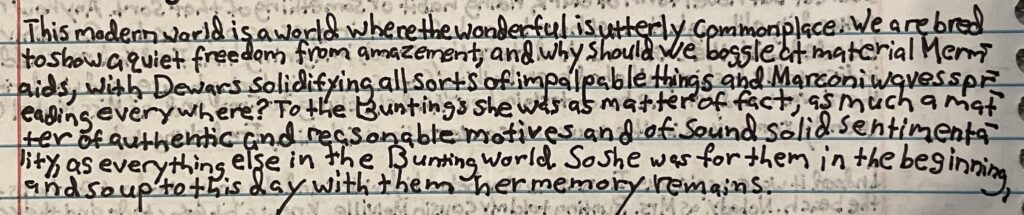 This modern world is a world where the wonderful is utterly commonplace. We are bred
to show a quiet freedom from amazement, and why should we boggle at material Merm-
aids, with Dewars solidifying all sorts of impalpable things and Marconi waves spr-
eading everywhere? To the Buntings she was as matter of fact, as much a mat-
ter of authentic and reasonable motives and of sound solid sentimenta-
lity, as everything else in the Bunting world. So she was for them in the beginning,
and so up to this day with them her memory remains.